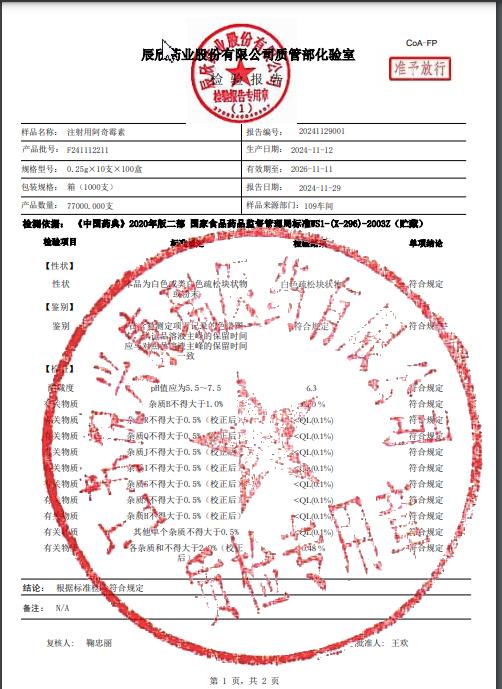 CoA-FP
辰欣药业股份有限公司质管部化验室
检验报告
准予放行
辰欣药业股份有限公司
检验报告专用章
(1)
样品名称: 注射用阿奇霉素 报告编号: 20241129001
产品批号: F241112211 生产日期: 2024-11-12
规格型号: 0.25g×10支×100盒 有效期至: 2026-11-11
包装规格: 箱(1000支) 报告日期: 2024-11-29
产品数量: 77000.000支 样品来源部门: 109车间
检测依据: 《中国药典》2020年版二部 国家食品药品监督管理局标准WS1-(X-296)-2003Z(贮藏)
检验项目 标准规定 检验结果 单项结论
【性状】
性状 本品为白色或类白色疏松块状物 白色疏松块状物 符合规定
或粉末
【鉴别】
鉴别 符合规定 符合规定
供试品溶液主峰的保留时间
应与对照品溶液主峰的保留时间
一致
【检查】
酸碱度 pH值应为5.5~7.5 6.3 符合规定
有关物质 杂质B不得大于1.0% 符合规定
有关物质 杂质R不得大于0.5%(校正后) <QL(0.1%) 符合规定
有关物质 杂质Q不得大于0.5%(校正后) <QL(0.1%) 符合规定
有关物质 杂质J不得大于0.5%(校正后) <QL(0.1%) 符合规定
有关物质 杂质I不得大于0.5%(校正后) <QL(0.1%) 符合规定
有关物质 不得大于0.5%(校正后) <QL(0.1%) 符合规定
有关物质 不得大于0.5%(校正后) <QL(0.1%) 符合规定
有关物质 杂质H不得大于0.5%(校正后) <QL(0.1%) 符合规定
有关物质 其他单个杂质不得大于0.5% <QL(0.1%) 符合规定
有关物质 各杂质和不得大于2.0%(校正 符合规定
后)
结论: 根据标准检验符合规定
备注: N/A
复核人: 鞠忠丽 批准人: 王欢
第 1 页, 共 2 页